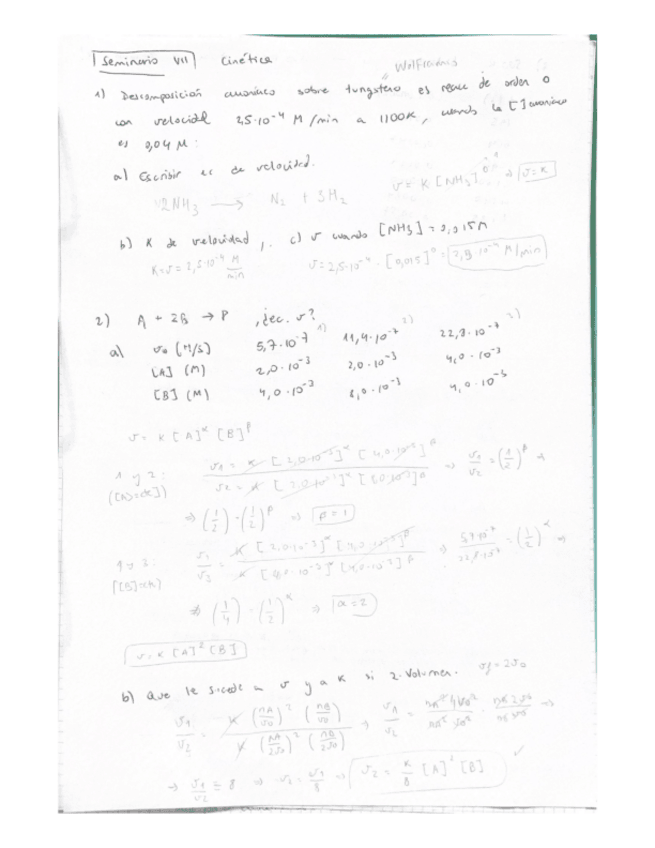 Seminario VII Cinética
Wolframio
1) Descomposición amoníaco sobre tungsteno es reacc de orden 0
con velocidad 2,5·10⁻⁴ M/min a 1100K, cuando la [ ] amoníaco
es 0,04 M:
a) Escribir ec de velocidad. v = K [NH3]⁰ ⇒ v=K
2NH3 → N2 + 3H2
b) K de velocidad, c) v cuando [NH3] = 0,015M
K=v = 2,5·10⁻⁴ M/min v = 2,5·10⁻⁴ · [0,015]⁰ = 2,5·10⁻⁴ M/min
2) A + 2B → P ¿ec. v?
1) 2) 3)
a) v₀ (M/s) 5,7·10⁻⁷ 11,4·10⁻⁷ 22,8·10⁻⁷
[A] (M) 2,0·10⁻³ 2,0·10⁻³ 4,0·10⁻³
[B] (M) 4,0·10⁻³ 8,0·10⁻³ 4,0·10⁻³
v = K [A]^α [B]^β
1 y 2: v1 = K [2,0·10⁻³]^α [4,0·10⁻³]^β ⇒ v1/v2 = (1/2)^β ⇒
([A]=cte) v2 = K [2,0·10⁻³]^α [8,0·10⁻³]^β
⇒ (1/2) = (1/2)^β ⇒ β=1
1 y 3: v1/v3 K [2,0·10⁻³]^α [4,0·10⁻³]^β / K [4,0·10⁻³]^α [4,0·10⁻³]^β ⇒ 5,7·10⁻⁷/22,8·10⁻⁷ = (1/2)^α ⇒
⇒ (1/4) = (1/2)^α ⇒ α=2
v = K [A]² [B]
b) Que le sucede a v y a K si 2·Volumen. vf = 2v0
v1/v2 = K (nA/v0)² (nB/v0) / K (nA/2v0)² (nB/2v0) ⇒ v1/v2 =
⇒ v1/v2 = 8 ⇒ v2 = v1/8 ⇒ v2 = K/8 [A]² [B] ✓